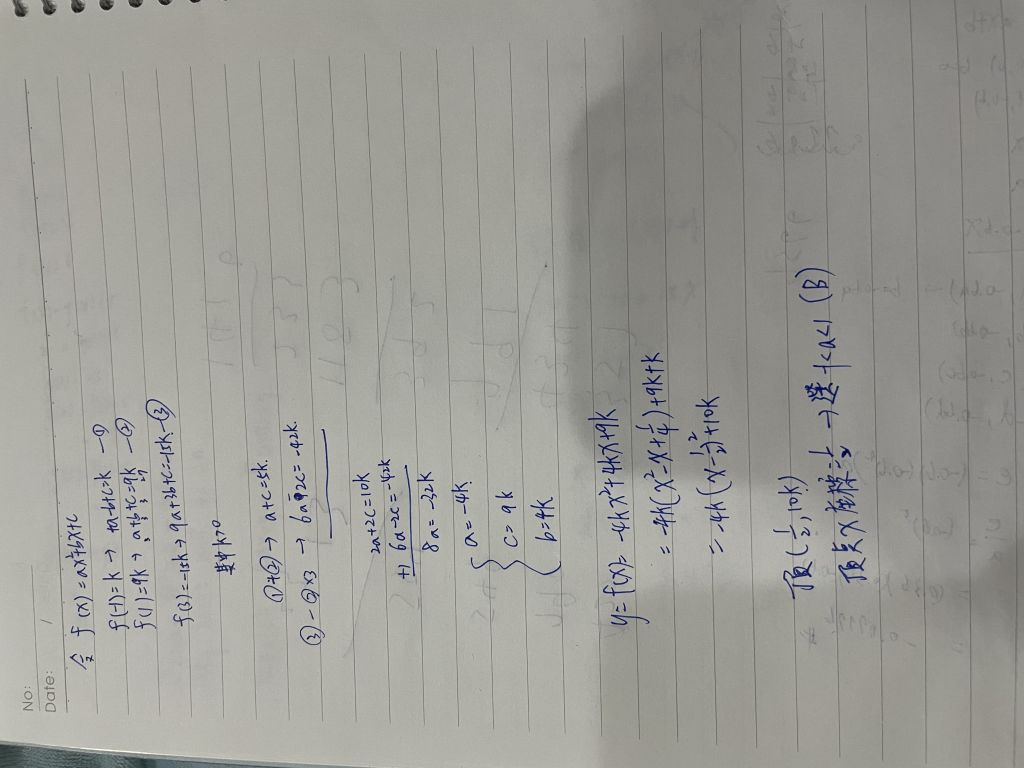 No:
Date: /
令 f(x)=ax²+bx+c
f(-1)=k → a-b+c=k —①
f(1)=9k → a+b+c=9k —②
f(3)=-15k → 9a+3b+c=-15k —③
其中k>0
①+② → a+c=5k
③-②×3 → 6a-2c=-42k
2a+2c=10k
+) 6a-2c=-42k
8a=-32k
a=-4k
c=9k
b=4k
y=f(x)=-4kx²+4kx+9k
=-4k(x²-x+1/4)+9k+k
=-4k(x-1/2)²+10k
頂(1/2,10k)
頂点x座標=1/2 → 選 <a<1 (B)